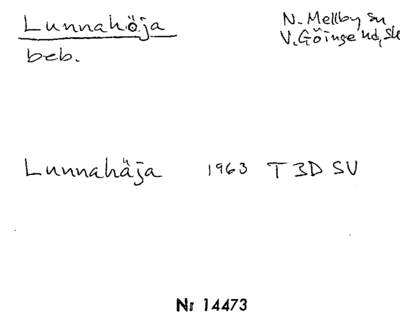 Lunnahöja
N. Mellby sn
beb.
V. Göinge hd, Sk
Lunnahäja 1963 T 3D SV
Nr 14473